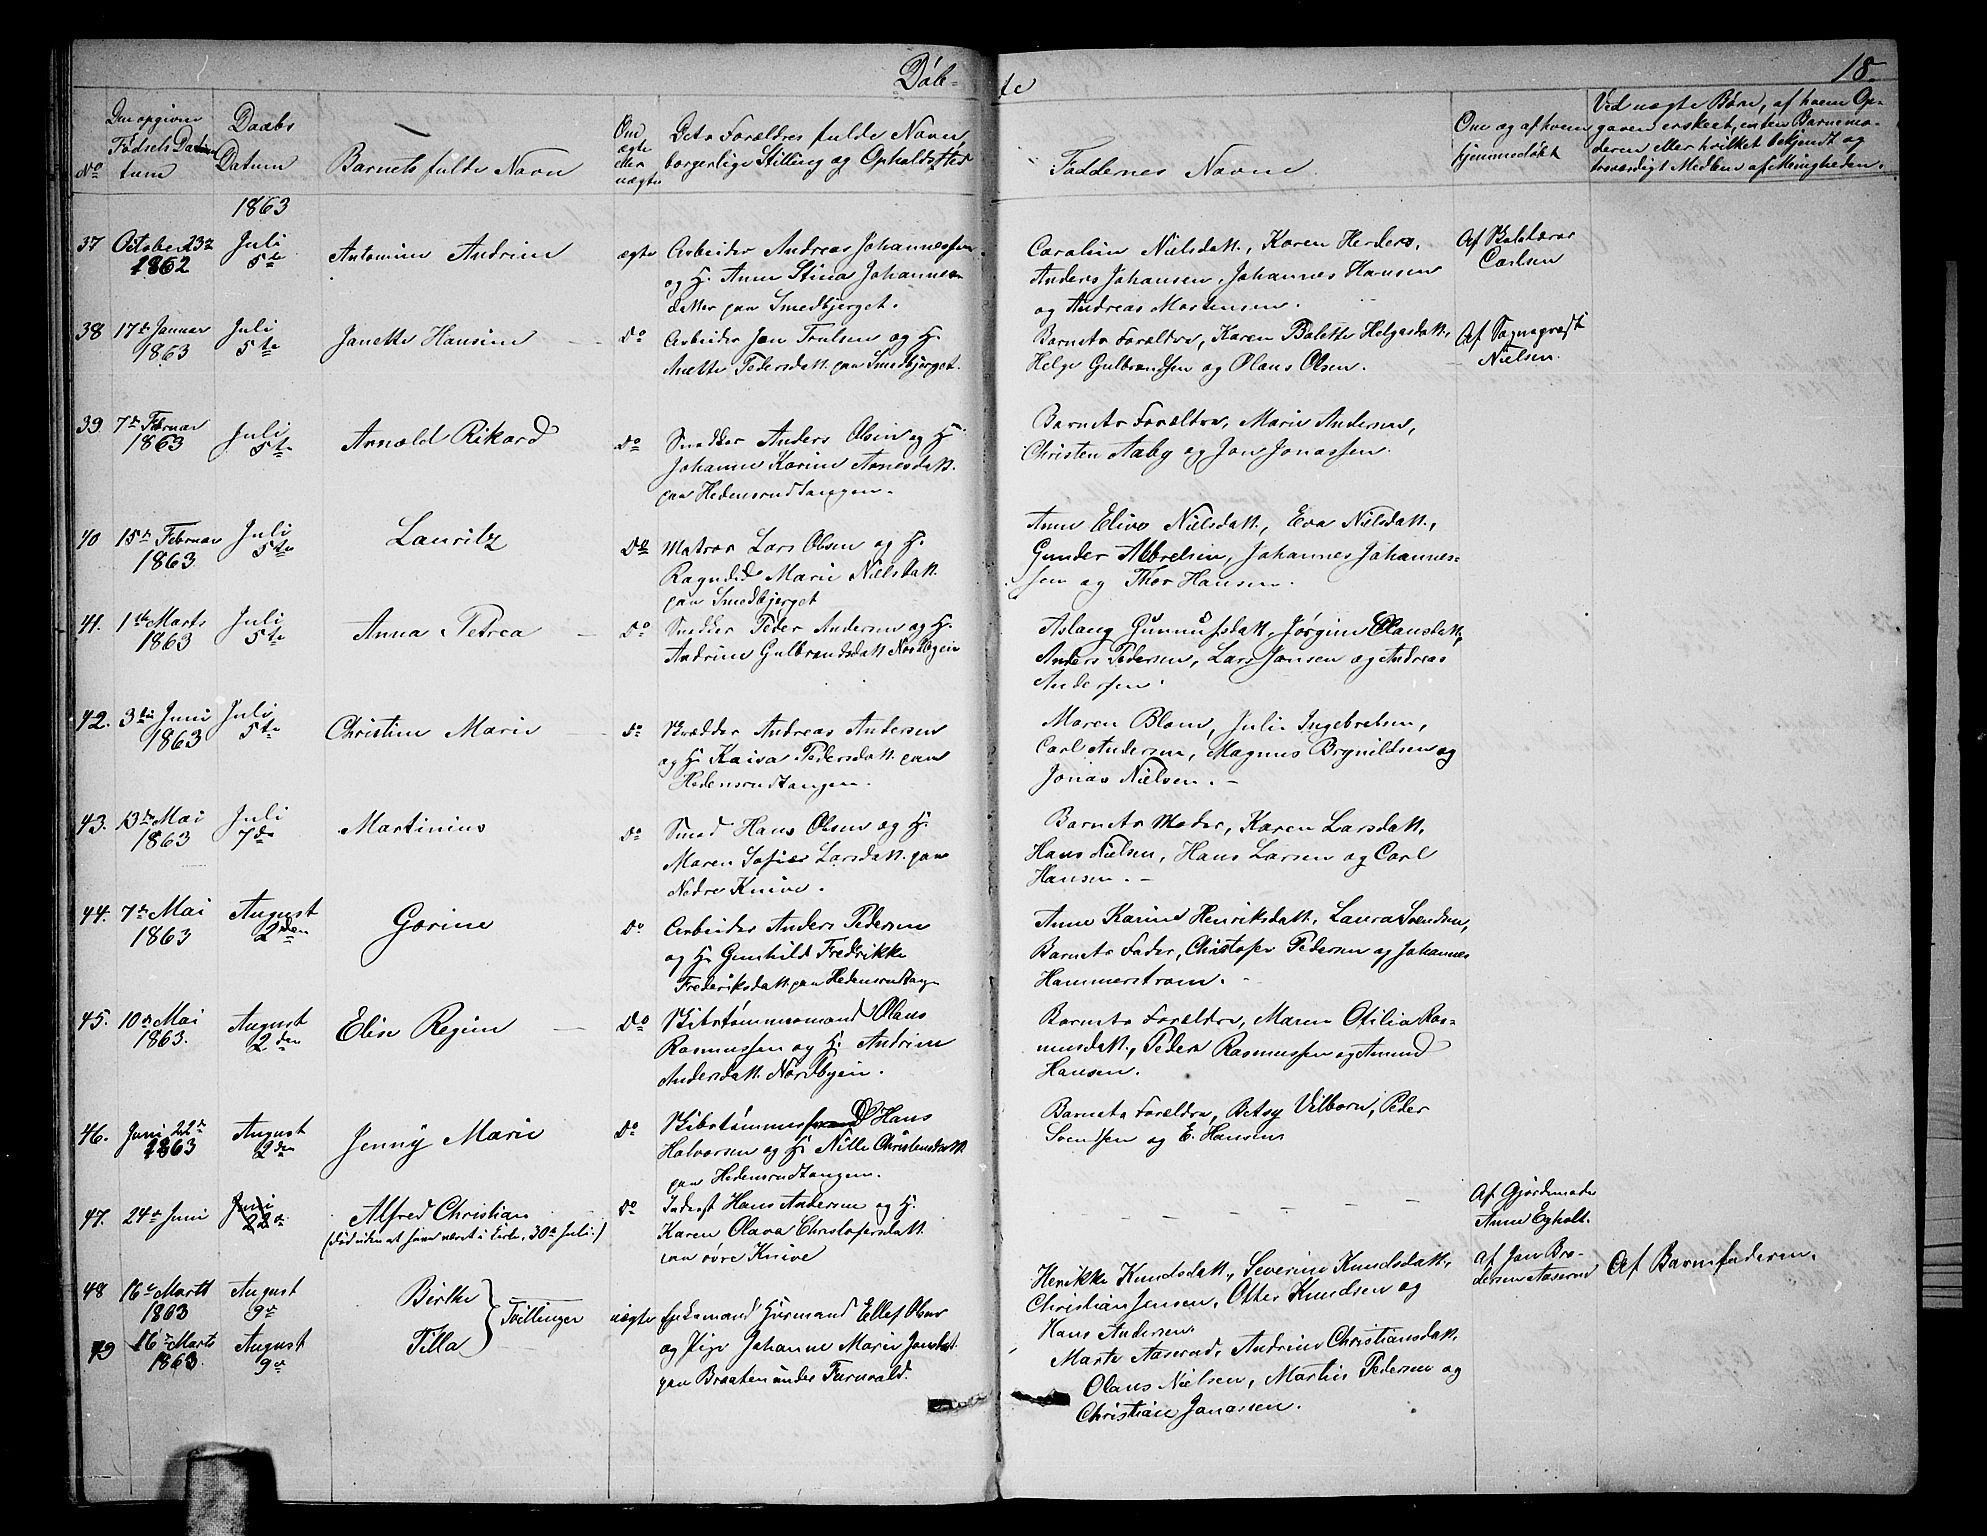 Døb-
te
18
No
Den opgivne
Fødsels Da-
tum
Daabs
Datum
Barnets fulde Navn
Om
ægte
eller
uægte
Dets Forældres fulde Navn
borgerlige Stilling og Opholdssted
Faddernes Navne
Om og af hvem
hjemmedøbt
Ved uægte Børn, af hvem Op-
gaven er skeet, enten Barnemo-
deren eller hvilket bekjendt og
troværdigt Medlem af Menigheden.
1863
37
October 23de
1862
Juli
5te
Antomine Andrine
ægte
Arbeider Andreas Johannessen
og H. Anne Stina Johannes-
datter paa Smedbjerget.
Caroline Nielsdatt., Karen Herders,
Anders Johansen, Johannes Hansen
og Andreas Mortensen.
Af
Carlsen
38
17de Januar
1863
Juli
5te
Janette Hansine
Do
Arbeider Jon Trulsen og H.
Mette Pedersdatt. paa Smedbjerget.
Barnets Forældre, Karen Bolette Helgesdatt.,
Helge Gulbrandsen og Olaus Olsen.
Af Sogneprest
Nielsen.
39.
7de Februar
1863
Juli
5te
Arnold Rikard
Do
Snedker Anders Olsen og H.
Johanne Karine Arnesdatt.
paa Hedensrudtangen.
Barnets Forældre, Marie Andersen,
Christen Aaby og Jon Jonassen.
40
15de Februar
1863
Juli
5te
Lauritz
Do
Matros Lars Olsen og H.
Ragndid Marie Nielsdatt.
paa Smedbjerget
Anne Elise Nielsdatt., Eva Nielsdatt.,
Gunder Albretsen, Johannes Johannes-
sen og Thor Hansen.
41.
1ste Marts
1863
Juli
5te
Anna Petrea
Do
Snedker Peder Andersen og H.
Andrine Gulbrandsdatt. Nordbyen
Aslaug Gunnufsdatt., Jørgine Olausdatt.,
Anders Pedersen, Lars Jonsen og Andreas
Andersen.
42.
3die Juni
1863
Juli
5te
Christine Marie
Do
Andreas Andersen
og H. Kaisa Pedersdatt. paa
Hedensrudtangen.
Maren Blom, Julie Ingebretsen,
Carl Andersen, Magnus Brynildsen og
Jonas Nielsen.
43.
13de Mai
1863
Juli
7de
Martinius
Do
Smed Hans Olsen og H.
Maren Sofie Larsdatt. paa
Nedre Knive.
Barnets Moder, Karen Larsdatt.
Hans Nielsen, Hans Larsen og Carl
Hansen.
44.
7de Mai
1863
August
2den
Gorine
Do
Arbeider Anders Pedersen
og H. Gunhild Fredrikke
Frederiksdatt. paa Hedensrudtang.
Anne Karine Henriksdatt., Laura Svendsen,
Barnets Fader, Christofer Pedersen og Johannes
Hammerstrøm.
45.
10de Mai
1863.
August
2den
Elise Regine
Do
Skibstømmermand Olaus
Rasmussen og H. Andrine
Andersdatt. Nordbyen.
Barnets Forældre, Maren Otilia Ras-
musdatt., Peder Rasmussen og Amund
Hansen.
46.
Juni 22de
1863
August
2den
Jenny Marie
Do
Skibstømmermand Hans
Halvorsen og H. Nille Christensdatt.
paa Hedensrudtangen.
Barnets Forældre, Betsy Vilborn, Peder
Svendsen og E. Hansen
47.
24de Juni
Juni
22de
Alfred Christian
(død uden at have været i Kirke, 30te Juli.)
Do
Inderst Hans Andersen og H.
Karen Olava Christofersdatt.
paa øvre Knive
Af Gjordemoder
Anne Egholt.
48
16de Marts
1863
August
9de
Birthe
Tvillinger
uægte
Enkemand Huusmand Ellef Olsen
og Pige Johanne Marie Jonsdatt.
paa Braaten under Furuvald.
Henrikke Knudsdatt., Severine Knudsdatt.,
Christian Jensen, Otter Knudsen og
Hans Andersen
af Jon Bro-
dersen Aaserud
Af Barnefaderen.
49
16de Marts
1863.
August
9de
Tilla
Marte Aaserud, Andrine Christiansdatt.
Olaus Nielsen, Martin Pedersen og
Christian Jonassen.